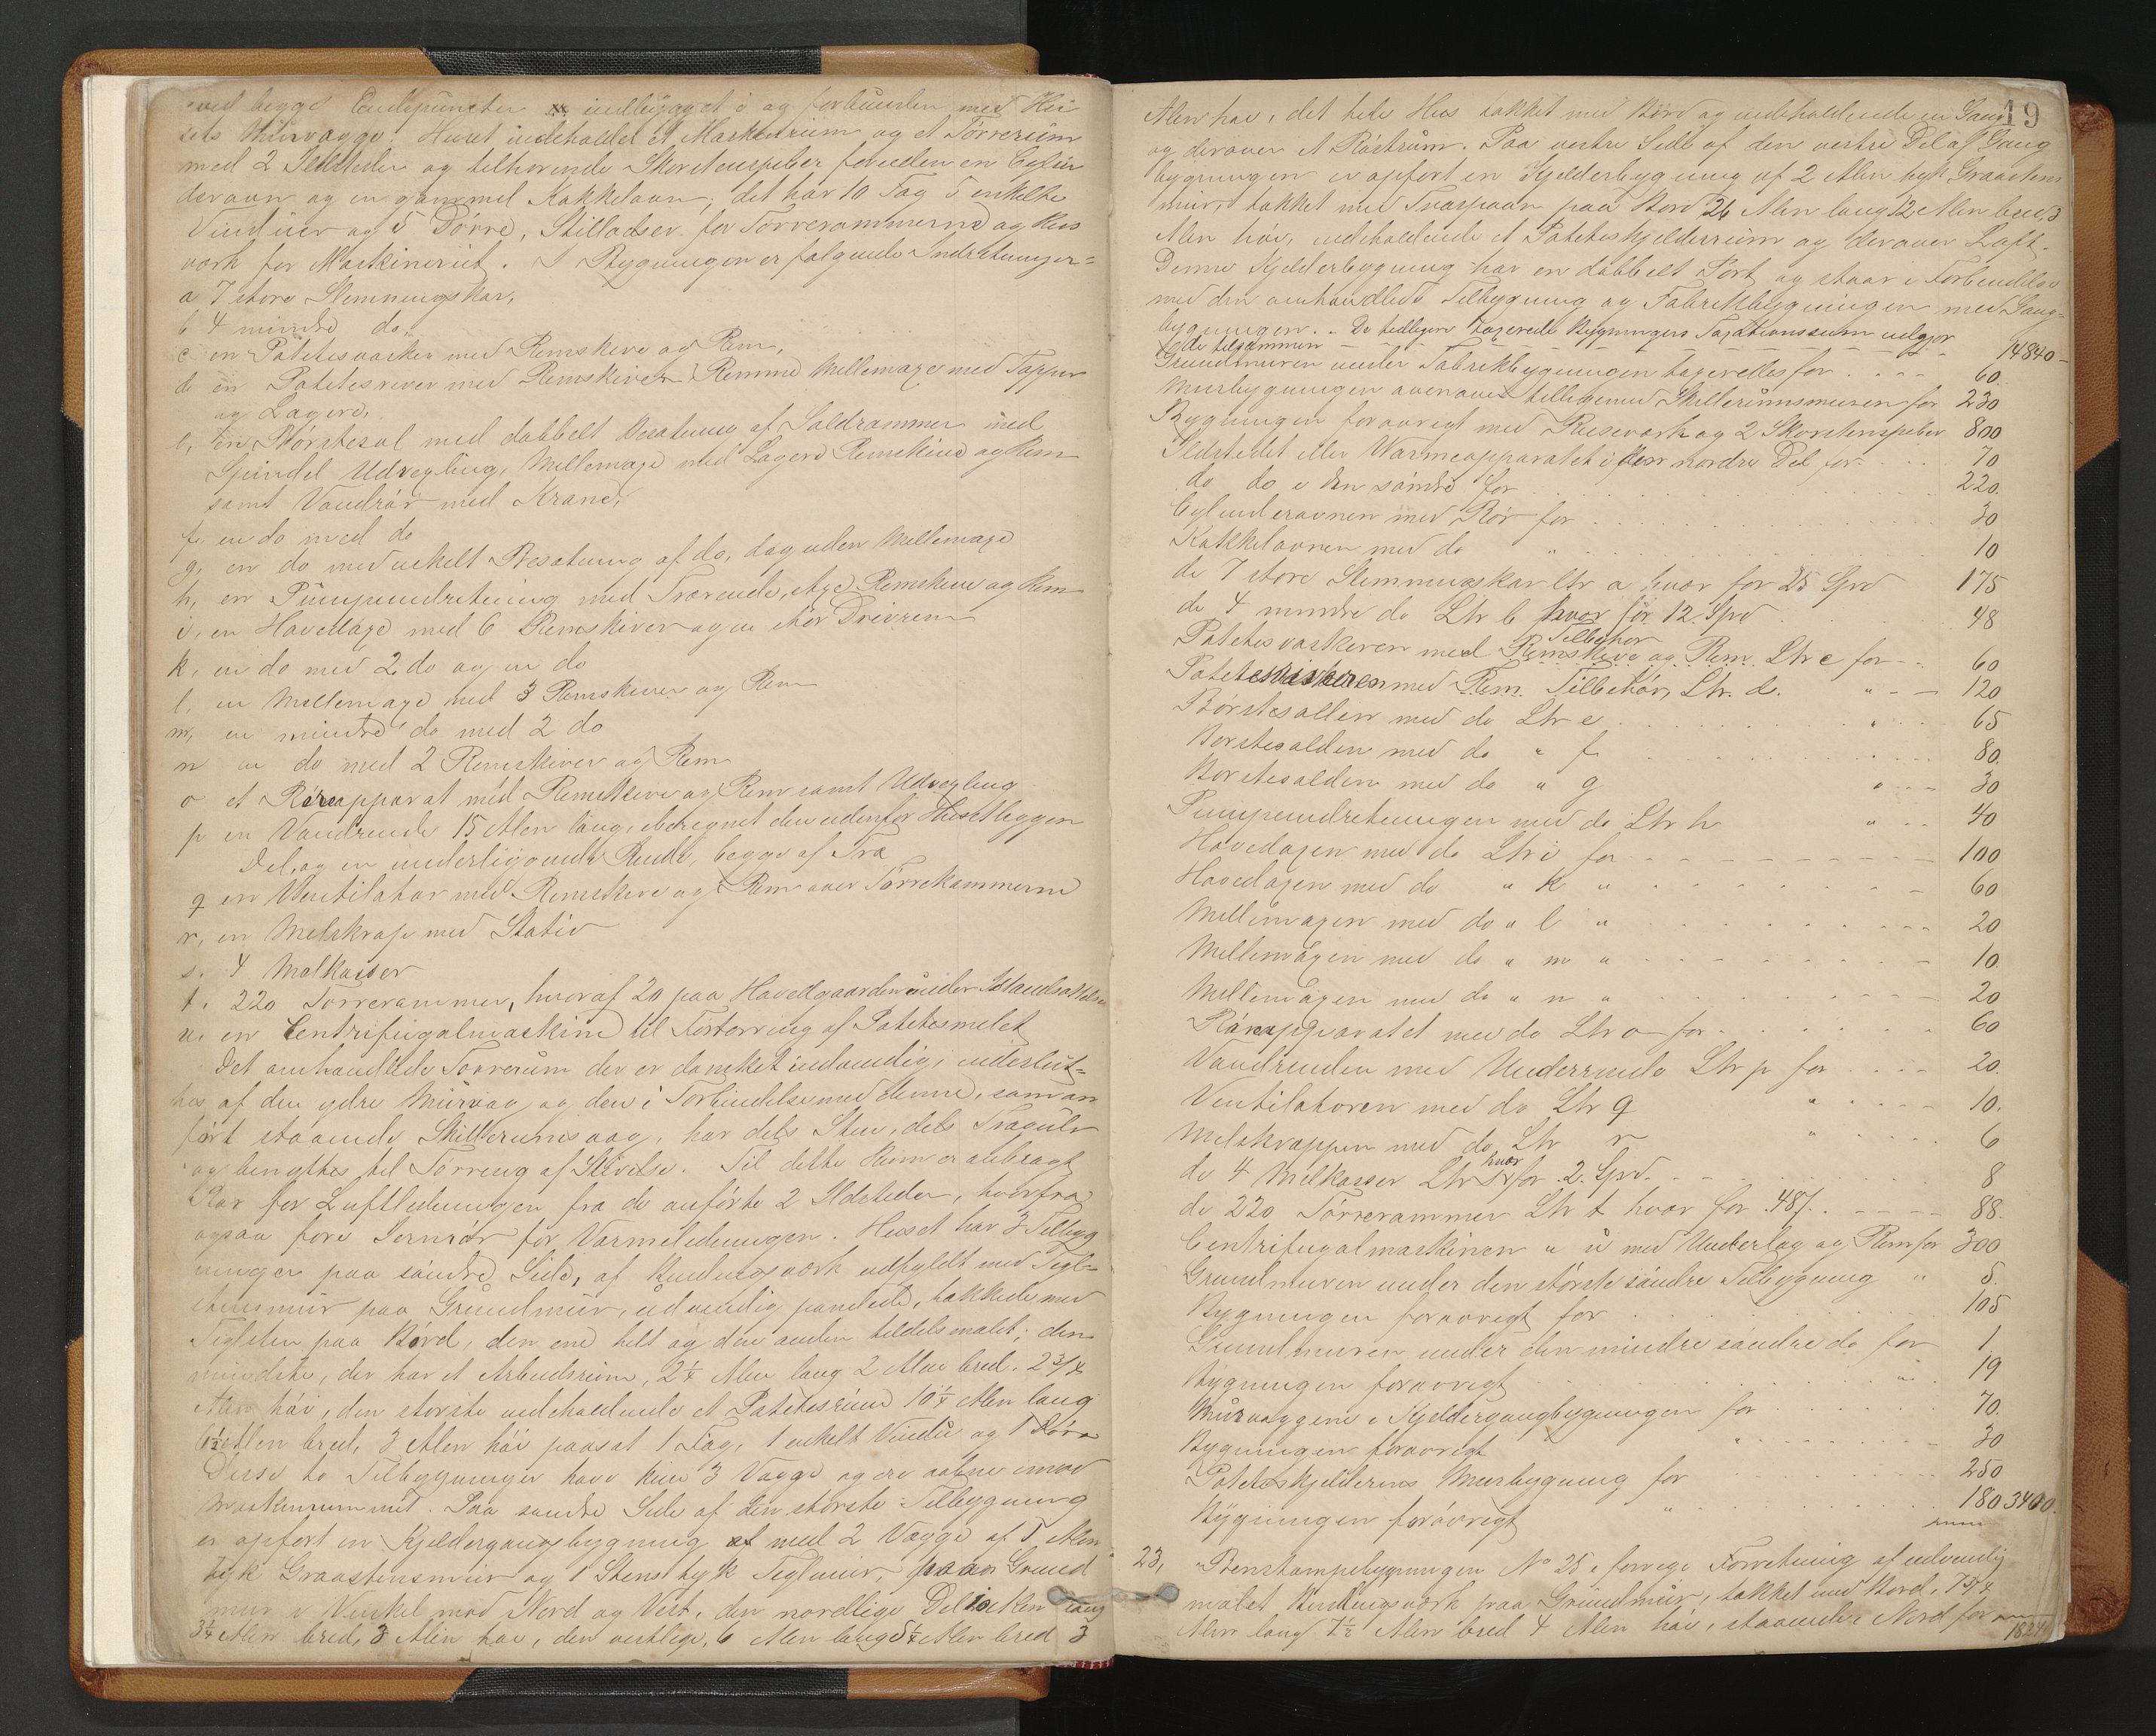 ved begge Endepuncter indbygget i og forbunden med Hu-
sets Murvægge. Huset indeholdt et Maskinrum og et Tørrerum
med 2 Ildsteder og tilhørende Skorstenspiber foruden en Cylin
derovn og en gammel Kakkelovn; det har 10 Fag 5 enkelte
Vinduer og 5 Dørre, Stilladser for Tørrerammerne og Hus
værk for Maskineriet. I Bygningen er følgende Indretninger=
a 7 store Slemningskar,
b 4 mindre do,
c en Potetesvasker med Remskive og Rem,
d en Potetesriver med Remskiver Remme Mellemaxe med Tapper
og Lagere,
e, en Børstesol med dobbelt Besætning af Soldrammer med
Spindel Udvexling, Mellemaxe med Lagere Remskive og Rem
samt Vandrør med Krane,
f. en do med do
g, en do med enkelt Besætning af do, dog uden Mellemaxe
h, en Pumpeindretning med Trærende, Axe, Remskive og Rem
i, en Hovedaxe med 6 Remskiver og en stor Drivrem
k, en do med 2 do og en do
l. en Mellemaxe med 3 Remskiver og Rem
m, en mindre do med 2 do
n en do med 2 Remskiver og Rem
o et Røreapparat med Remskive og Rem samt Udvexling
p en Vandrende 15 Alen lang, iberegnet den udenfor Huset liggen
Del, og en underliggende Rende, begge af Træ
q en Ventilator med Remskive og Rem over Tørrekammerne
r, en Melskrape med Stativ
s. 4 Melkasser
t. 220 Tørrerammer, hvoraf 20 paa Hovedgaarden under Istandsættelse
u. en Centrifugalmaskine til Tørring af Potetesmelet
Det omhandlede Tørrerum der er dansket indvendig, indeslut=
tes af den ydre Murvæg og den i Forbindelse med denne, som an
ført staaende Skillerumsvæg, har dels Sten, dels Trægulv
og benyttes til Tørring af Stivelse. Til dette Rum er anbragt
Rør for Luftledningen fra de anførte 2 Ildsteder, hvorfra
ogsaa føre Jernrør for Varmeledningen. Huset har 3 Tilbyg
ninger paa søndre Side, af Bindingsværk udfyldt med Tegl-
stensmur paa Grundmur, udvendig panelede, takkede med
Teglsten paa Bord, den ene helt og den anden tildels malet; den
mindste, der har et Arbeidsrum, 2¼ Alen lang 2 Alen bred. 2 3/4
Alen høi, den største indeholdende et Potetesrum 10¼ Alen lang
6½ Alen bred, 3 Alen høi paasat 1 Fag, 1 enkelt Vindu og 1 Dørr
Disse to Tilbygninger have kun 3 Vægge og ere aabne imod
Maskinrummet. Paa søndre Side af den største Tilbygning
er opført en Kjeldergangsbygning med 2 Vægge af 1 Alen
tyk Graastensmur og 1 Stens tyk Teglmur, paa Grund
mur i Vinkel mod Nord og Vest, den nordlige Del 10 Alen lang
3¼ Alen bred, 3 Alen høi, den vestlige, 6 Alen lang 5¼ Alen bred 3
19
Alen høi, det hele Hus takket med Bord og indeholdende en Gang
og derover et Røstrum. Paa vestre Side af den vestre Del af Gang
bygningen er opført en Kjelderbygning af 2 Alen tyk Graastens
mur, takket med Træspaan paa Bord 26 Alen lang 12 Alen bred, 3
Alen høi, indeholdende et Poteteskjelderrum og derover Loft.
Denne Kjelderbygning har en dobbelt Port og staar i Forbindelse
med den omhandlede Tilbygning og Fabrikbygningen med Gang-
bygningen. De tidligere taxerede Bygningers Taxationssum udgjør
tilsammen 14840
Grundmuren under Fabrikbygningen taxeredes for 60
Murbygningen ovenover tilligemed Skillerumsmuren for 230
Bygningen forøvrigt med Reisværk og 2 Skorstenspiber 800
Ildstedet eller Varmeapparatet i den nordre Del for 70
do do i den søndre for 220.
Cylinderovnen med Rør for 30
Kakkelovnen med do " 10
de 7 store Slemningskar Ltr a hvor for 25 Spd 175
de 4 mindre do Ltr b hvor for 12 Spd 48
Tilbehør
Potetesvaskeren med Remskive og Rem Ltr c for 60
Potetesriveren med Rem Tilbehør, Ltr. d. " 120
Børstesollen med do Ltr e " 65
Børstesolden med do " f 80.
Børstesolden med do " g 30
Pumpeindretningen med do Ltr h " 40
Hovedaxen med do Ltr i for 100
Hovedaxen med do " k " 60
Mellemaxen med do " l " 20
Mellemaxen med do " m " 10
Mellemaxen med do " n " 20
Røreapparatet med do Ltr o for 60
Vandrenden med Underrende Ltr p for 20.
Ventilatoren med do Ltr q " 10.
Melskrappen med do Ltr r " 6
hvor
de 4 Melkasser Ltr s for 2 Spd. 8
de 220 Tørrerammer Ltr t hvor for 48 88.
Centrifugalmaskinen " u med Underlag og Rem for 300
Grundmuren under den største søndre Tilbygning " 5.
Bygningen forøvrigt for 105
Grundmuren under den mindre søndre do for 1
Bygningen forøvrigt " 19
Murvæggene i Kjeldergangbygningen for 70.
Bygningen forøvrigt " 30
Poteteskjelderens Murbygning for 250
Bygningen forøvrigt " 180 3400.
23, Benstampebygningen No 25 i forrige Forretning af udvendig
malet Bindingsværk paa Grundmur, takket med Bord, 7 3/4
Alen lang 7½ Alen bred 4 Alen høi, staaende i Nord for